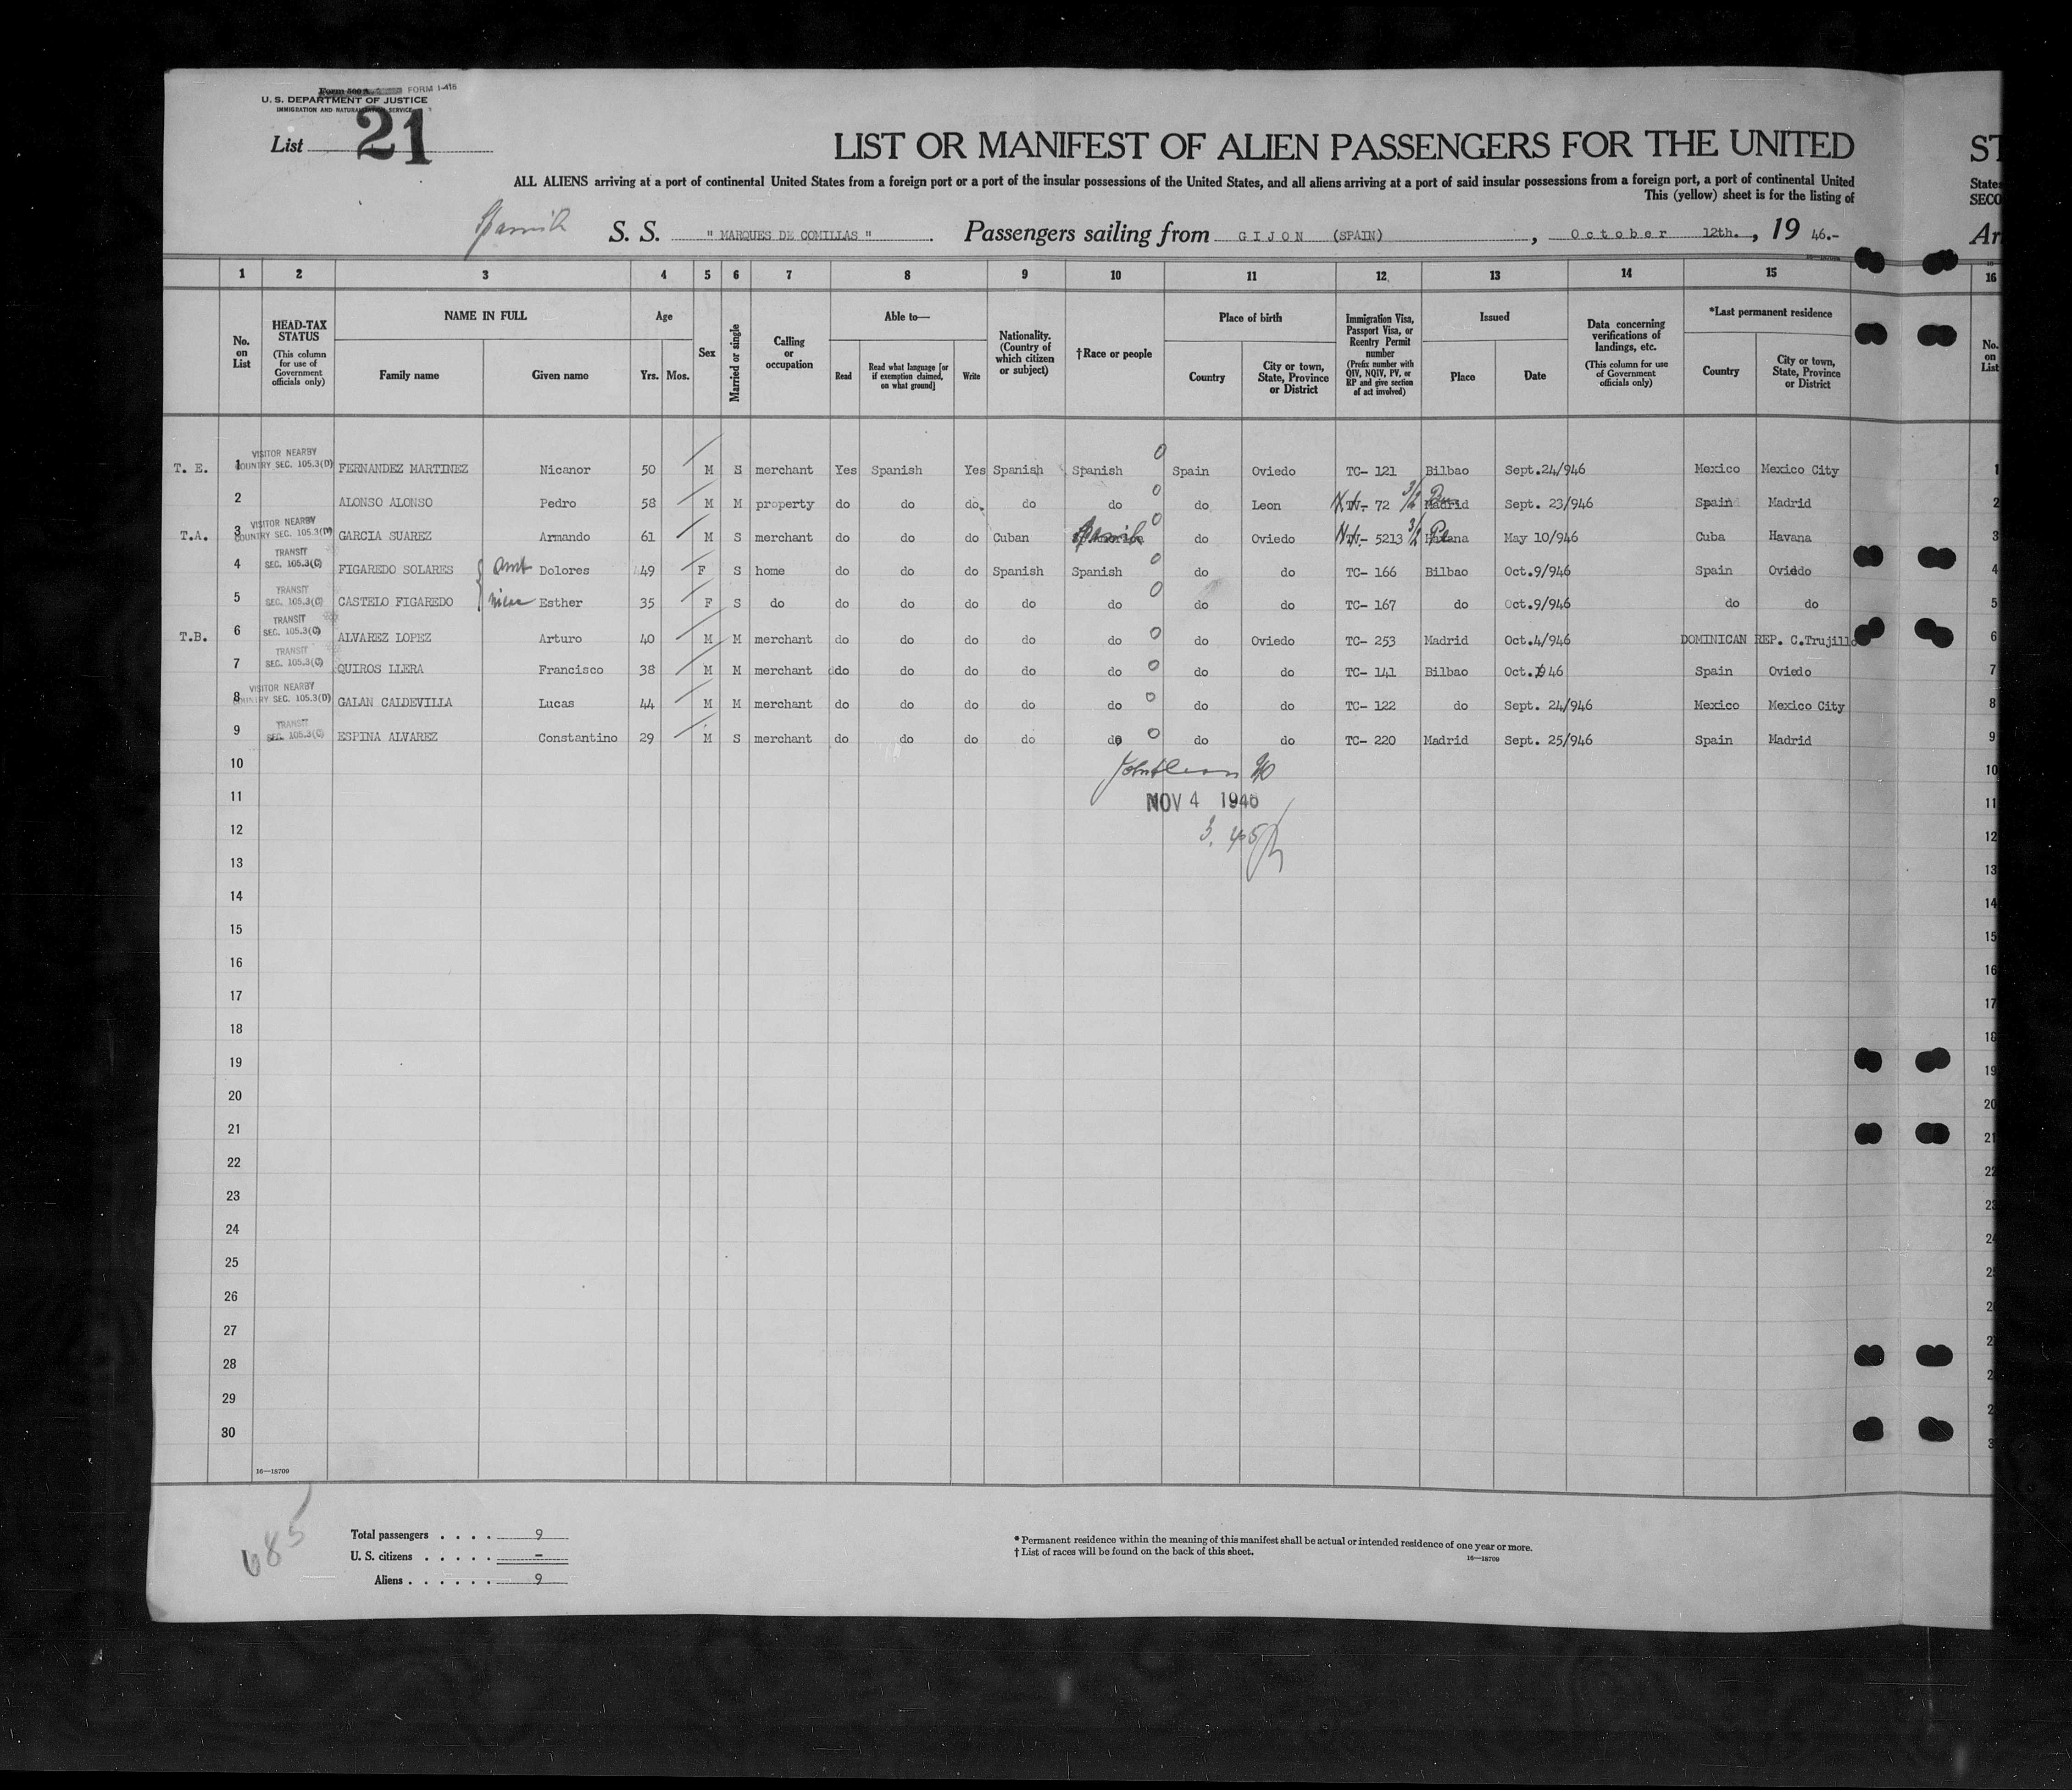 Form 500 A FORM I-416
U. S. DEPARTMENT OF JUSTICE
IMMIGRATION AND NATURALIZATION SERVICE
List 21
LIST OR MANIFEST OF ALIEN PASSENGERS FOR THE UNITED ST
ALL ALIENS arriving at a port of continental United States from a foreign port or a port of the insular possessions of the United States, and all aliens arriving at a port of said insular possessions from a foreign port, a port of continental United States
This (yellow) sheet is for the listing of SECO
Spanish S. S. " MARQUES DE COMILLAS " Passengers sailing from GIJON (SPAIN) , October 12th. , 19 46.- Ar
1 2 3 4 5 6 7 8 9 10 11 12 13 14 15 16
No. on List
HEAD-TAX STATUS (This column for use of Government officials only)
NAME IN FULL
Family name Given name
Age
Yrs. Mos.
Sex
Married or single
Calling or occupation
Able to—
Read
Read what language [or if exemption claimed, on what ground]
Write
Nationality. (Country of which citizen or subject)
†Race or people
Place of birth
Country
City or town, State, Province or District
Immigration Visa, Passport Visa, or Reentry Permit number (Prefix number with QIV, NQIV, PV, or RP and give section of act involved)
Issued
Place Date
Data concerning verifications of landings, etc. (This column for use of Government officials only)
*Last permanent residence
Country
City or town, State, Province or District
No. on List
T. E. 1 VISITOR NEARBY COUNTRY SEC. 105.3(D) FERNANDEZ MARTINEZ Nicanor 50 M S merchant Yes Spanish Yes Spanish Spanish 0 Spain Oviedo TC- 121 Bilbao Sept.24/946 Mexico Mexico City 1
2 ALONSO ALONSO Pedro 58 M M property do do do. do do 0 do Leon TV- 72 3/2 Madrid Sept. 23/946 Spain Madrid 2
T.A. 3 VISITOR NEARBY COUNTRY SEC. 105.3(D) GARCIA SUAREZ Armando 61 M S merchant do do do Cuban Spanish 0 do Oviedo TV- 5213 3/2 Habana May 10/946 Cuba Havana 3
4 TRANSIT SEC. 105.3(C) FIGAREDO SOLARES Aunt Dolores 49 F S home do do do Spanish Spanish 0 do do TC- 166 Bilbao Oct.9/946 Spain Oviedo 4
5 TRANSIT SEC. 105.3(C) CASTELO FIGAREDO niece Esther 35 F S do do do do do do 0 do do TC- 167 do Oct.9/946 do do 5
T.B. 6 TRANSIT SEC. 105.3(C) ALVAREZ LOPEZ Arturo 40 M M merchant do do do do do 0 do Oviedo TC- 253 Madrid Oct.4/946 DOMINICAN REP. C.Trujillo 6
7 TRANSIT SEC. 105.3(C) QUIROS LLERA Francisco 38 M M merchant do do do do do 0 do do TC- 141 Bilbao Oct. 946 Spain Oviedo 7
8 VISITOR NEARBY COUNTRY SEC. 105.3(D) GALAN CALDEVILLA Lucas 44 M M merchant do do do do do 0 do do TC- 122 do Sept. 24/946 Mexico Mexico City 8
9 TRANSIT SEC. 105.3(C) ESPINA ALVAREZ Constantino 29 M S merchant do do do do do 0 do do TC- 220 Madrid Sept. 25/946 Spain Madrid 9
10 10
11 NOV 4 1946 11
12 12
13 13
14 14
15 15
16 16
17 17
18 18
19 19
20 20
21 21
22 22
23 23
24 24
25 25
26 26
27 2
28 2
29 2
30 3
16—18709
685
Total passengers . . . . 9
U. S. citizens . . . . . –
Aliens . . . . . . 9
* Permanent residence within the meaning of this manifest shall be actual or intended residence of one year or more.
† List of races will be found on the back of this sheet.
16—18709